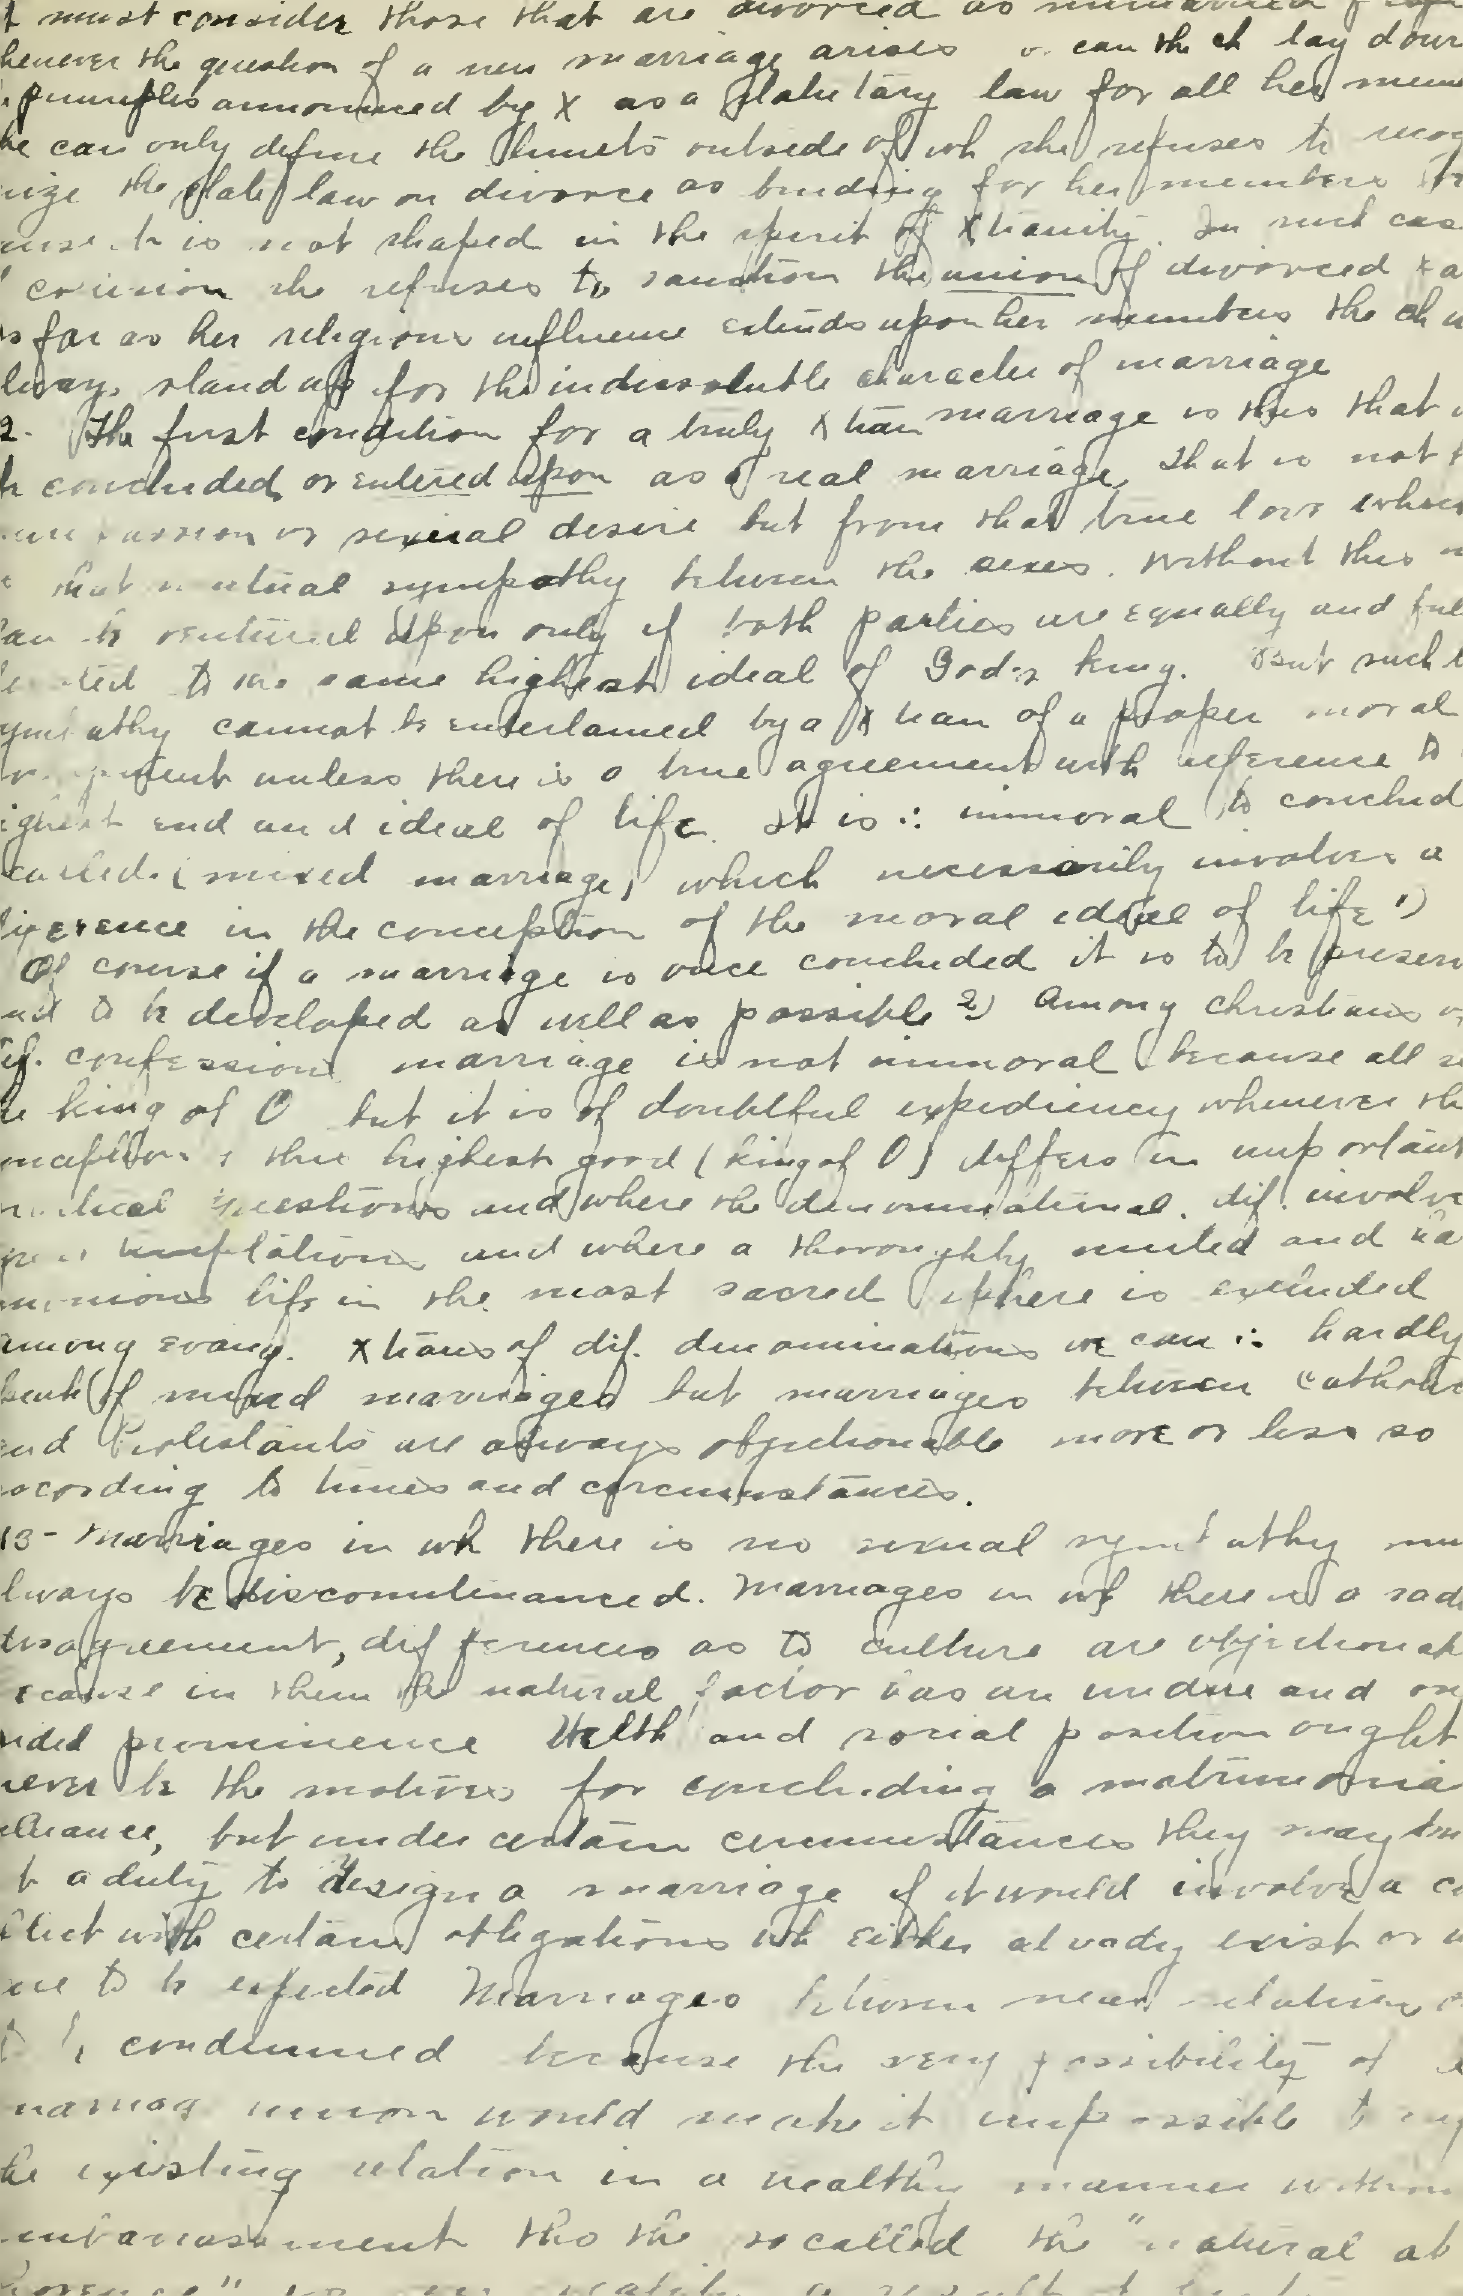 must consider those that are divorced as unmarried
henever the question of a new marriage arises or can the ch lay down
principles announced by X as a statutary law for all her mem
he can only define the limits outside of wh she refuses to recog
nize the state law on divorce as binding for her members
ause it is not shaped in the spirit of Xtianity. In such cas
collision she refuses to sanction the union of divorced
s far as her religious influence extends upon her members the ch
lways stand up for the indissoluble character of marriage
2. The first condition for a truly Xtian marriage is this that
be concluded or entered upon as a real marriage, that is not
passion or sexual desire but from that true love
that mutual sympathy between the sexes. Without this
an be ventured upon only if both parties are equally and ful
to the same highest ideal of God's king. But such
ympathy cannot be entertained by a Xtian of a proper moral
unless there is a true agreement with reference to
ighest end and ideal of life. It is ∴ immoral to conclud
called (mixed marriage) which necessarily involves a
ference in the conception of the moral ideal of life 1)
Of course if a marriage is once concluded it is to be preserv
to be developed as well as possible 2) Among christians
dif. confession marriage is not immoral because all
king of O but it is of doubtful expediency whenever the
nception of the highest good (king of O) differs in important
questions and where the denominational. dif. involve
temptations and where a thoroughly united and ha
monious life in the most sacred sphere is excluded
among evang. Xtians of dif. denominations we can ∴ hardly
of mixed marriages but marriages between catholic
and Protestants are always objectionable more or less so
according to times and circumstances.
13 - Marriages in wh there is no sexual sympathy mu
lways be discountinanced. Marriages in wh there is a radi
disagreement, differences as to culture are objectionab
ecause in them the natural factor has an undue and on
sided prominence Welth and social position ought
never be the motives for concluding a matrimonia
alliance, but under certain circumstances they may
a duty to resign a marriage if it would involve a co
flict with certain obligations wh either already exist or
are to be expected Marriages between near relatives
condemned because the very possibility of
marriag union would make it impossible to
the existing relation in a healthy manner without
embarrassment tho the so called the "natural ab
horence"